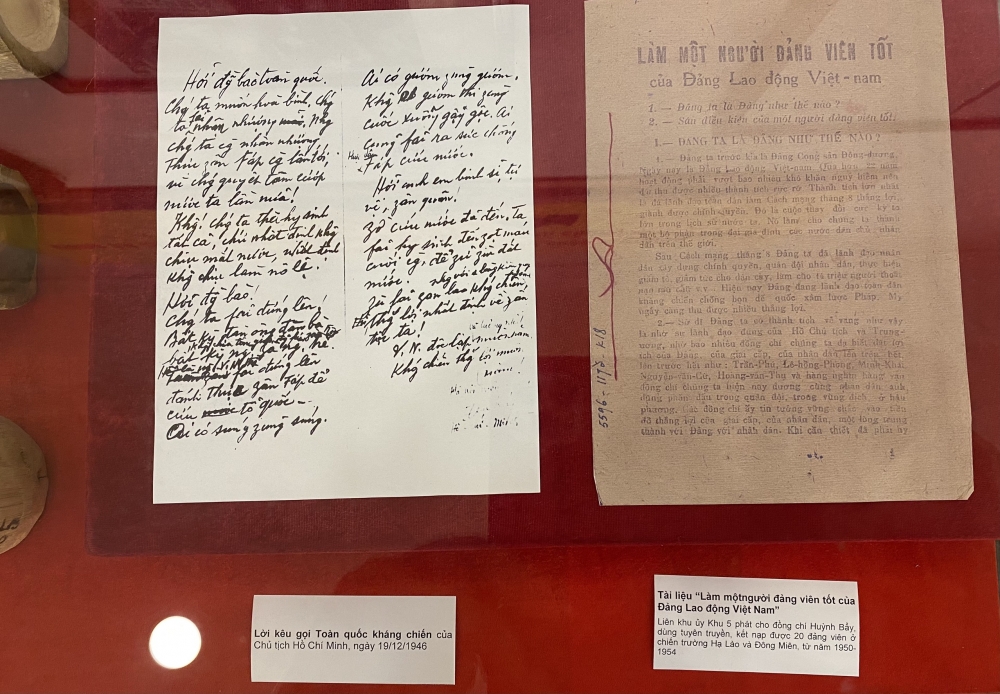 Hỡi đg̃ bào toàn quốc.
Chg̃ ta muốn hoà bình, chg̃
ta fải nhân nhượng. Nhg
chg̃ ta cg̃ nhân nhượng
thực zân Fáp cg̃ lấn tới,
vì chg̃ quyết tâm cướp
nước ta lần nữa!
Khg̃! Chg̃ ta thà hy sinh
tất cả, chứ nhất định khg̃
chịu mất nước, nhất định
khg̃ chịu làm nô lệ.
Hỡi đg̃ bào!
Chg̃ ta fải đứng lên!
Bất kỳ đàn ông đàn bà
bất kỳ ng̃ già ng̃ trẻ
fải đứng lên
đánh thực zân Fáp để
cứu tổ quốc.
Ai có súng zùng súng.
Ai có gươm zùng gươm,
Khg̃ có gươm thì zùng
cuốc xuổng gậy gộc. Ai
cũng fải ra sức chống
Fáp cứu nước.
Hỡi anh em binh sĩ, tự
vệ, zân quân!
Zờ cứu nước đã đến, ta
fải hy sinh đến zọt máu
cuối cg̃, để zữ zìn đất
nước.
Zù fải zan lao kháng chiến,
thắng lợi nhất định về zân
tộc ta!
V.N. độc lập muôn năm
Khg̃ chiến thắg lợi muôn
năm!
LÀM MỘT NGƯỜI ĐẢNG VIÊN TỐT
của Đảng Lao động Việt-nam
1. — Đảng ta là Đảng như thế nào?
2. — Sáu điều kiện của một người đảng viên tốt!
1. — ĐẢNG TA LÀ ĐẢNG NHƯ THẾ NÀO?
1. — Đảng ta trước kia là Đảng Cộng sản Đông-dương,
Ngày nay là Đảng Lao động Việt-nam. Qua hơn năm
hoạt động phải vượt bao nhiêu khó khăn nguy hiểm nên
đã thu được nhiều thành tích rực rỡ. Thành tích lớn nhất
là đã lãnh đạo toàn dân làm Cách mạng tháng 8 thắng lợi,
giành được chính quyền. Đó là cuộc thay đổi cực kỳ to
lớn trong lịch sử nước ta. Nó làm cho chúng ta thành
một bộ phận trong đại gia đình các nước dân chủ nhân
dân trên thế giới.
Sau Cách mạng tháng 8 Đảng ta đã lãnh đạo nhân
dân xây dựng chính quyền, quân đội nhân dân, thực hiện
giảm tô, giảm tức cho dân cày, làm cho triệu người thoát
nạn mù chữ v.v... Hiện nay Đảng đang lãnh đạo toàn dân
kháng chiến chống bọn đế quốc xâm lược Pháp. Mỗi
ngày càng thu được nhiều thắng lợi.
2. — Sở dĩ Đảng ta có thành tích vẻ vang như vậy
là nhờ sự lãnh đạo đúng của Hồ Chủ tịch và Trung-
ương, nhờ bao nhiêu đồng chí chúng ta đã biết đặt lợi
ích của Đảng, của giai cấp, của nhân dân lên trên hết,
lên trước hết như: Trần-Phú, Lê-hồng-Phong, Minh-Khai,
Nguyễn-văn-Cừ, Hoàng-văn-Thụ và hàng nghìn hàng vạn
đồng chí chúng ta hiện nay đương cùng nhân dân anh
dũng phấn đấu trong quân đội, trong vùng địch, ở hậu
phương. Các đồng chí ấy tin tưởng vững chắc vào tiền
đồ thắng lợi của giai cấp, của nhân dân, một lòng trung
thành với Đảng với nhân dân. Khi cần thiết đã phải hy
5596 - 1193 - K18
Lời kêu gọi Toàn quốc kháng chiến của
Chủ tịch Hồ Chí Minh, ngày 19/12/1946
Tài liệu “Làm mộtngười đảng viên tốt của
Đảng Lao động Việt Nam”
Liên khu ủy Khu 5 phát cho đồng chí Huỳnh Bẩy,
dùng tuyên truyền, kết nạp được 20 đảng viên ở
chiến trường Hạ Lào và Đông Miên, từ năm 1950-
1954